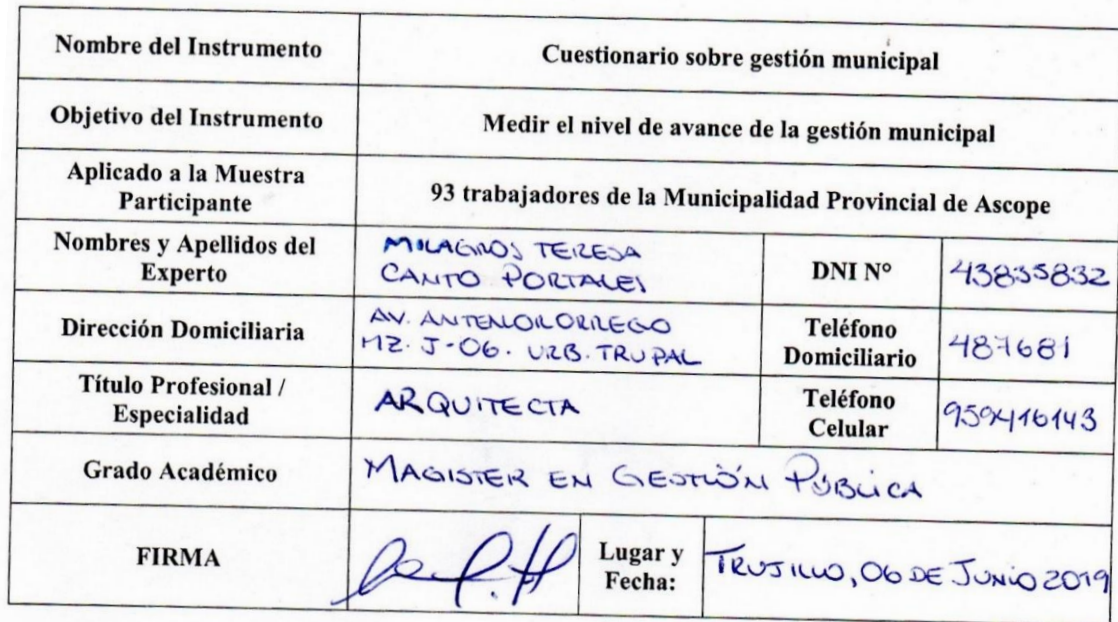 Nombre del Instrumento
Cuestionario sobre gestión municipal
Objetivo del Instrumento
Medir el nivel de avance de la gestión municipal
Aplicado a la Muestra
Participante
93 trabajadores de la Municipalidad Provincial de Ascope
Nombres y Apellidos del
Experto
MILAGROS TERESA
CANTO PORTALES
DNI N°
43835832
Dirección Domiciliaria
AV. ANTENOR ORREGO
MZ. J-06. URB. TRUPAL
Teléfono
Domiciliario
487681
Título Profesional /
Especialidad
ARQUITECTA
Teléfono
Celular
Grado Académico
MAGISTER EN GESTIÓN PÚBLICA
FIRMA
Lugar y
Fecha:
TRUJILLO, 06 DE JUNIO 2019